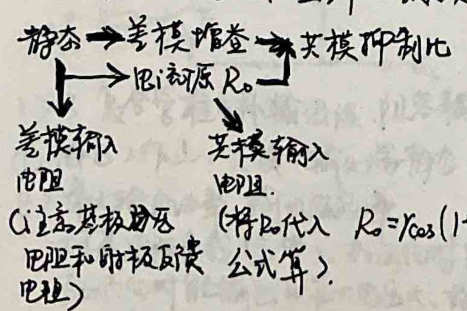 静态→差模增益→共模抑制比
→电流源 R₀
差模输入
电阻
(注意基极
电阻和射极反馈
电阻)
共模输入
电阻.
(将R₀代入 R₀=r
公式算).